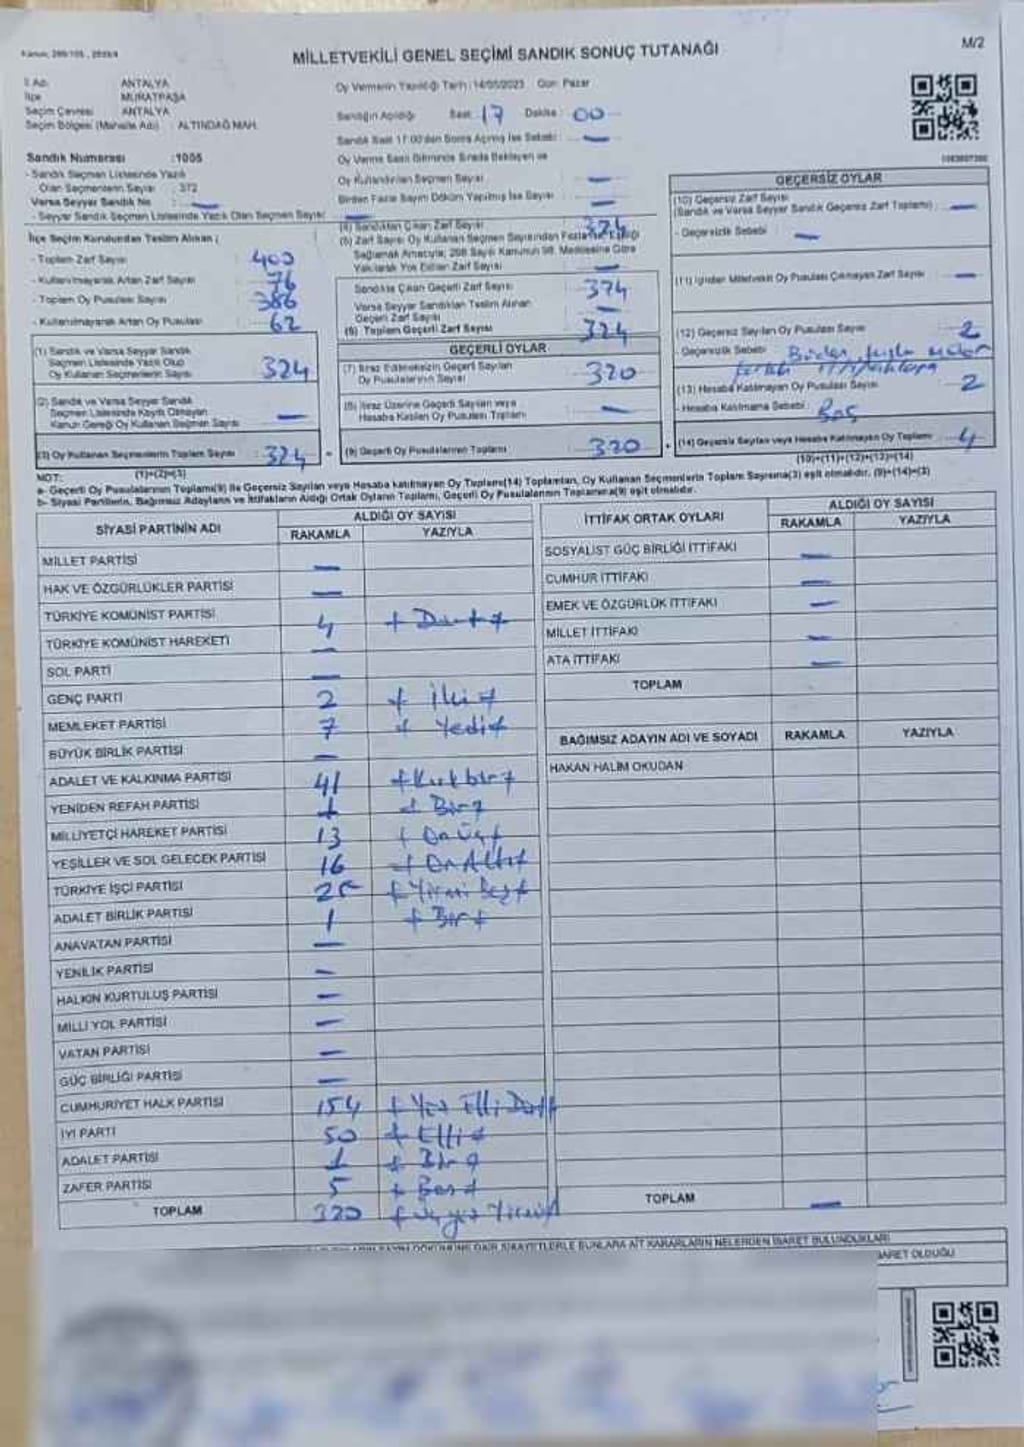 Kanun: 298/105, 2839/4
MİLLETVEKİLİ GENEL SEÇİMİ SANDIK SONUÇ TUTANAĞI
M/2
İl Adı ANTALYA
İlçe MURATPAŞA
Seçim Çevresi ANTALYA
Seçim Bölgesi (Mahalle Adı) : ALTINDAĞ MAH.
Oy Vermenin Yapıldığı Tarih : 14/05/2023 Gün: Pazar
Sandığın Açıldığı Saat : 17 Dakika : 00
Sandık Saat 17:00'den Sonra Açılmış İse Sebebi : —
Oy Verme Saati Bitiminde Sırada Bekleyen ve
Oy Kullandırılan Seçmen Sayısı : —
Birden Fazla Sayım Döküm Yapılmış İse Sayısı : —
Sandık Numarası : 1005
- Sandık Seçmen Listesinde Yazılı
Olan Seçmenlerin Sayısı : 372
Varsa Seyyar Sandık No : —
- Seyyar Sandık Seçmen Listesinde Yazılı Olan Seçmen Sayısı: —
İlçe Seçim Kurulundan Teslim Alınan ;
- Toplam Zarf Sayısı 400
- Kullanılmayarak Artan Zarf Sayısı 76
- Toplam Oy Pusulası Sayısı 386
- Kullanılmayarak Artan Oy Pusulası 62
(1) Sandık ve Varsa Seyyar Sandık
Seçmen Listesinde Yazılı Olup
Oy Kullanan Seçmenlerin Sayısı 324
(2) Sandık ve Varsa Seyyar Sandık
Seçmen Listesinde Kayıtlı Olmayan
Kanun Gereği Oy Kullanan Seçmen Sayısı —
(3) Oy Kullanan Seçmenlerin Toplam Sayısı 324
(1)+(2)=(3)
(4) Sandıktan Çıkan Zarf Sayısı 324
(5) Zarf Sayısı Oy Kullanan Seçmen Sayısından Fazla
Sağlamak Amacıyla; 298 Sayılı Kanunun 98. Maddesine Göre
Yakılarak Yok Edilen Zarf Sayısı —
Sandıkta Çıkan Geçerli Zarf Sayısı 324
Varsa Seyyar Sandıktan Teslim Alınan
Geçerli Zarf Sayısı —
(6) Toplam Geçerli Zarf Sayısı 324
GEÇERLİ OYLAR
(7) İtiraz Edilmeksizin Geçerli Sayılan
Oy Pusulalarının Sayısı 320
(8) İtiraz Üzerine Geçerli Sayılan veya
Hesaba Katılan Oy Pusulası Toplamı —
(9) Geçerli Oy Pusulalarının Toplamı 320
GEÇERSİZ OYLAR
(10) Geçersiz Zarf Sayısı
(Sandık ve Varsa Seyyar Sandık Geçersiz Zarf Toplamı) : —
- Geçersizlik Sebebi : —
(11) İçinden Milletvekili Oy Pusulası Çıkmayan Zarf Sayısı —
(12) Geçersiz Sayılan Oy Pusulası Sayısı 2
- Geçersizlik Sebebi : Birden fazla
(13) Hesaba Katılmayan Oy Pusulası Sayısı 2
- Hesaba Katılmama Sebebi : Boş
(14) Geçersiz Sayılan veya Hesaba Katılmayan Oy Toplamı 4
(10)+(11)+(12)+(13)=(14)
NOT:
a- Geçerli Oy Pusulalarının Toplamı(9) ile Geçersiz Sayılan veya Hesaba katılmayan Oy Toplamı(14) Toplamları, Oy Kullanan Seçmenlerin Toplam Sayısına(3) eşit olmalıdır. (9)+(14)=(3)
b- Siyasi Partilerin, Bağımsız Adayların ve İttifakların Aldığı Ortak Oyların Toplamı, Geçerli Oy Pusulalarının Toplamına(9) eşit olmalıdır.
SİYASİ PARTİNİN ADI ALDIĞI OY SAYISI
RAKAMLA YAZIYLA
MİLLET PARTİSİ —
HAK VE ÖZGÜRLÜKLER PARTİSİ —
TÜRKİYE KOMÜNİST PARTİSİ 4 Dört
TÜRKİYE KOMÜNİST HAREKETİ —
SOL PARTİ —
GENÇ PARTİ 2 İki
MEMLEKET PARTİSİ 7 Yedi
BÜYÜK BİRLİK PARTİSİ —
ADALET VE KALKINMA PARTİSİ 41 Kırkbir
YENİDEN REFAH PARTİSİ 1 Bir
MİLLİYETÇİ HAREKET PARTİSİ 13 Onüç
YEŞİLLER VE SOL GELECEK PARTİSİ 16 OnAltı
TÜRKİYE İŞÇİ PARTİSİ 25 Yirmi Beş
ADALET BİRLİK PARTİSİ 1 Bir
ANAVATAN PARTİSİ —
YENİLİK PARTİSİ —
HALKIN KURTULUŞ PARTİSİ —
MİLLİ YOL PARTİSİ —
VATAN PARTİSİ —
GÜÇ BİRLİĞİ PARTİSİ —
CUMHURİYET HALK PARTİSİ 154 Yüz Elli Dört
İYİ PARTİ 50 Elli
ADALET PARTİSİ 1 Bir
ZAFER PARTİSİ 5 Beş
TOPLAM 320 Üçyüz Yirmi
İTTİFAK ORTAK OYLARI ALDIĞI OY SAYISI
RAKAMLA YAZIYLA
SOSYALİST GÜÇ BİRLİĞİ İTTİFAKI —
CUMHUR İTTİFAKI —
EMEK VE ÖZGÜRLÜK İTTİFAKI —
MİLLET İTTİFAKI —
ATA İTTİFAKI —
TOPLAM
BAĞIMSIZ ADAYIN ADI VE SOYADI RAKAMLA YAZIYLA
HAKAN HALİM OKUDAN
TOPLAM —
SAYIM DÖKÜMÜNE DAİR ŞİKAYETLERLE BUNLARA AİT KARARLARIN NELERDEN İBARET BULUNDUKLARI
İBARET OLDUĞU